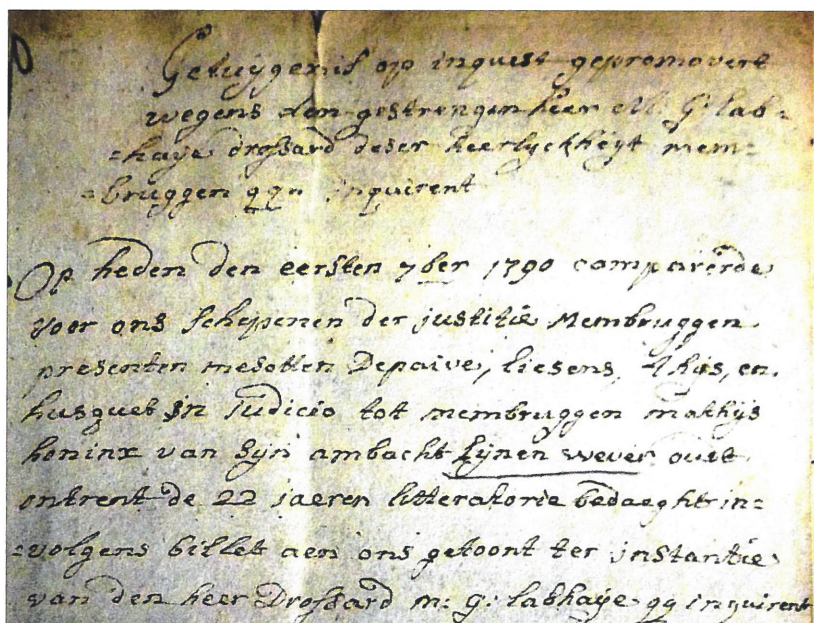 Getuygenis op inquest gepromovert
wegens den gestrengen heer M: G: lab=
=haye drossard deser heerlyckheyt mem=
=bruggen qqa inquirent
Op heden den eersten 7ber 1790 compareerde
voor ons schepenen der justitie Membruggen
presenten mesotten Depaive, liesens, Thijs, en
husquet in judicio tot membruggen mathijs
honinx van syn ambacht lynen wever oudt
ontrent de 22 jaeren litteratorie bedaeght in=
=volgens billet aen ons getoont ter instantie
van den heer Drossard m: G: labhaye qq inquirent